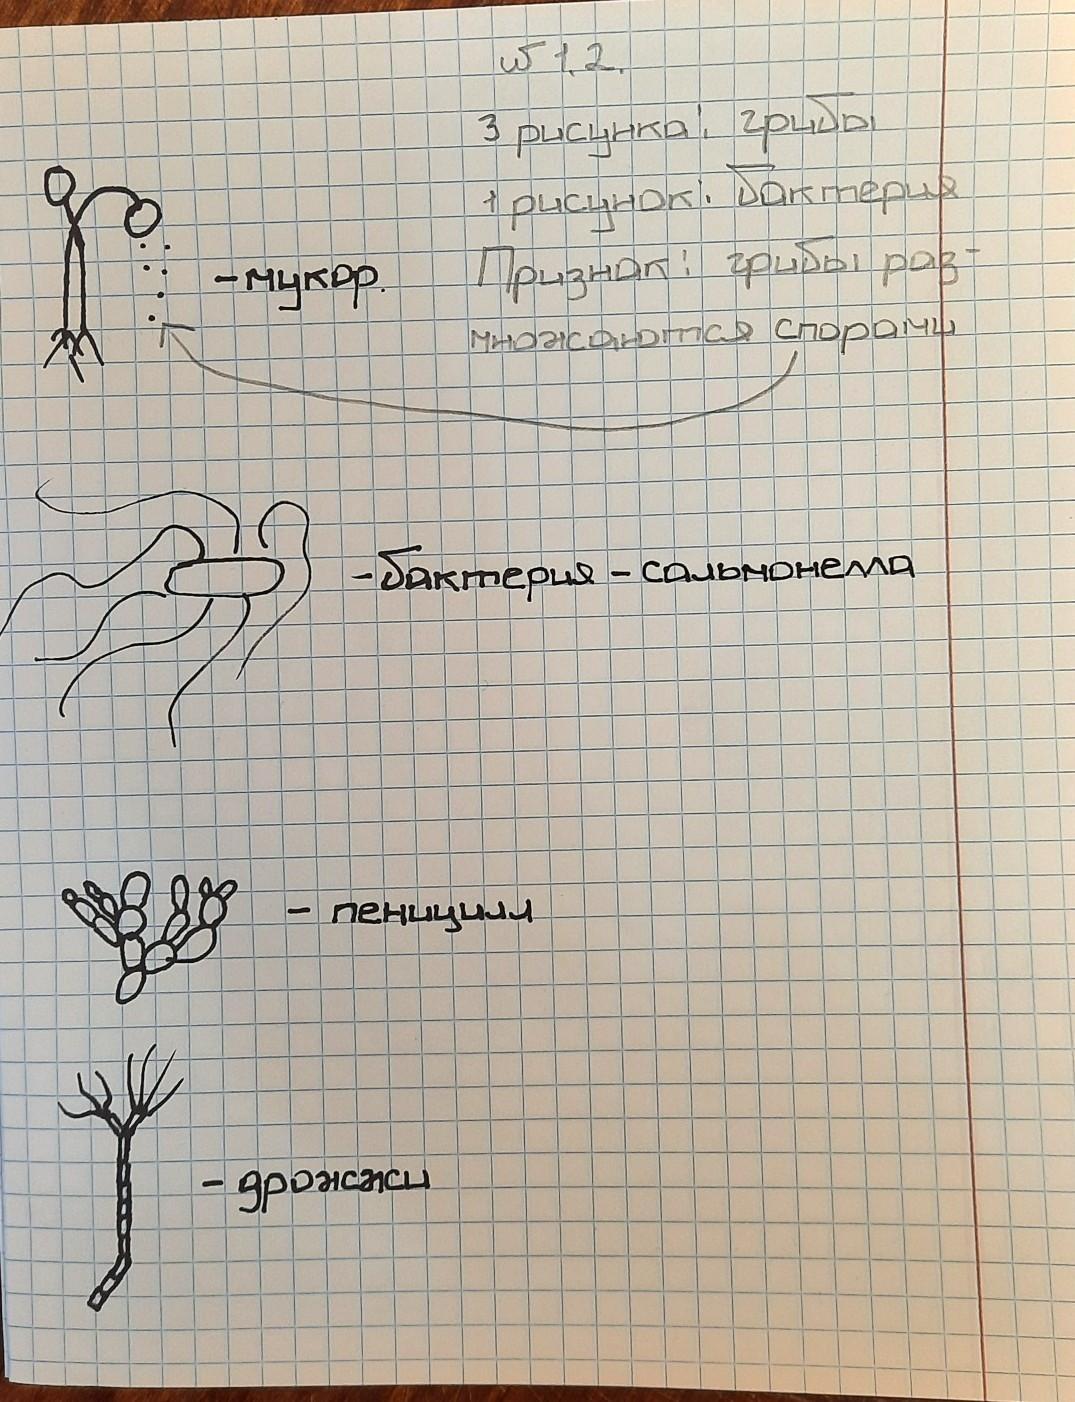 № 1.2.
3 рисунка: грибы
1 рисунок: бактерия
Признак: грибы раз-
множаются спорами
- мукор.
- бактерия - сальмонелла
- пеницилл
- дрожжи